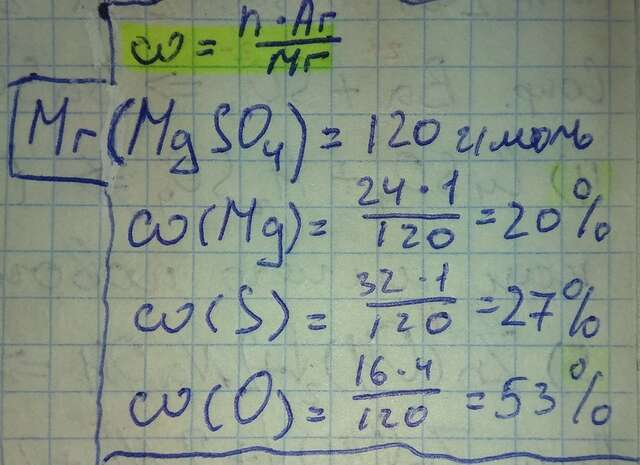 ω = n · Ar / Mr
Mr (MgSO₄) = 120 г/моль
ω(Mg) = 24 · 1 / 120 = 20%
ω(S) = 32 · 1 / 120 = 27%
ω(O) = 16 · 4 / 120 = 53%